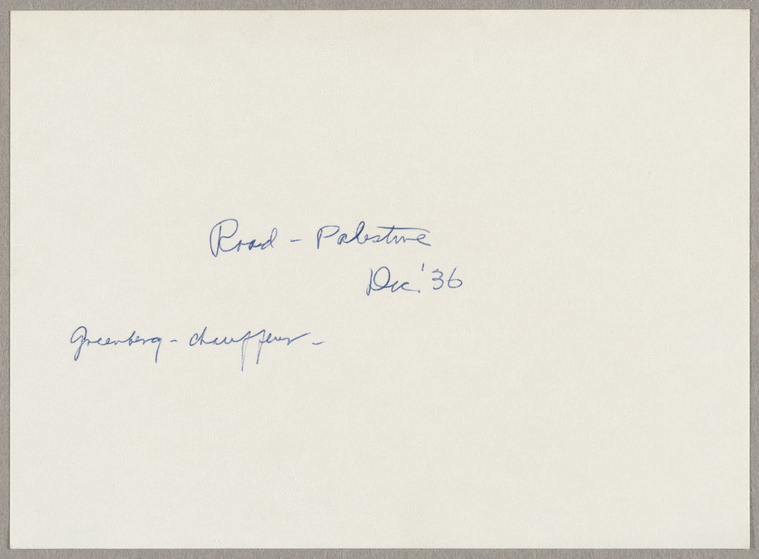 Road - Palestine
Dec. '36
Greenberg - chauffeur -